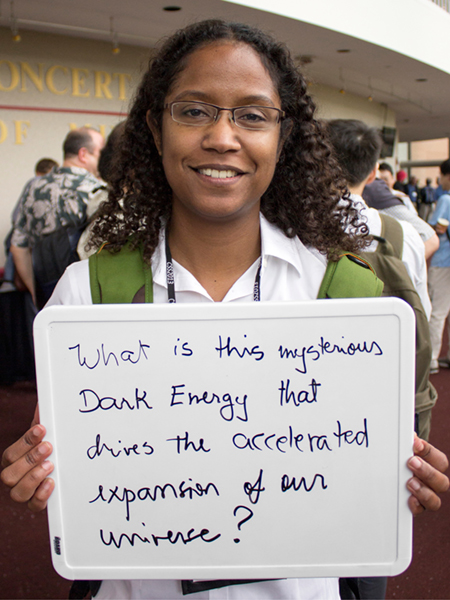 CONCERT
What is this mysterious
Dark Energy that
drives the accelerated
expansion of our
universe?